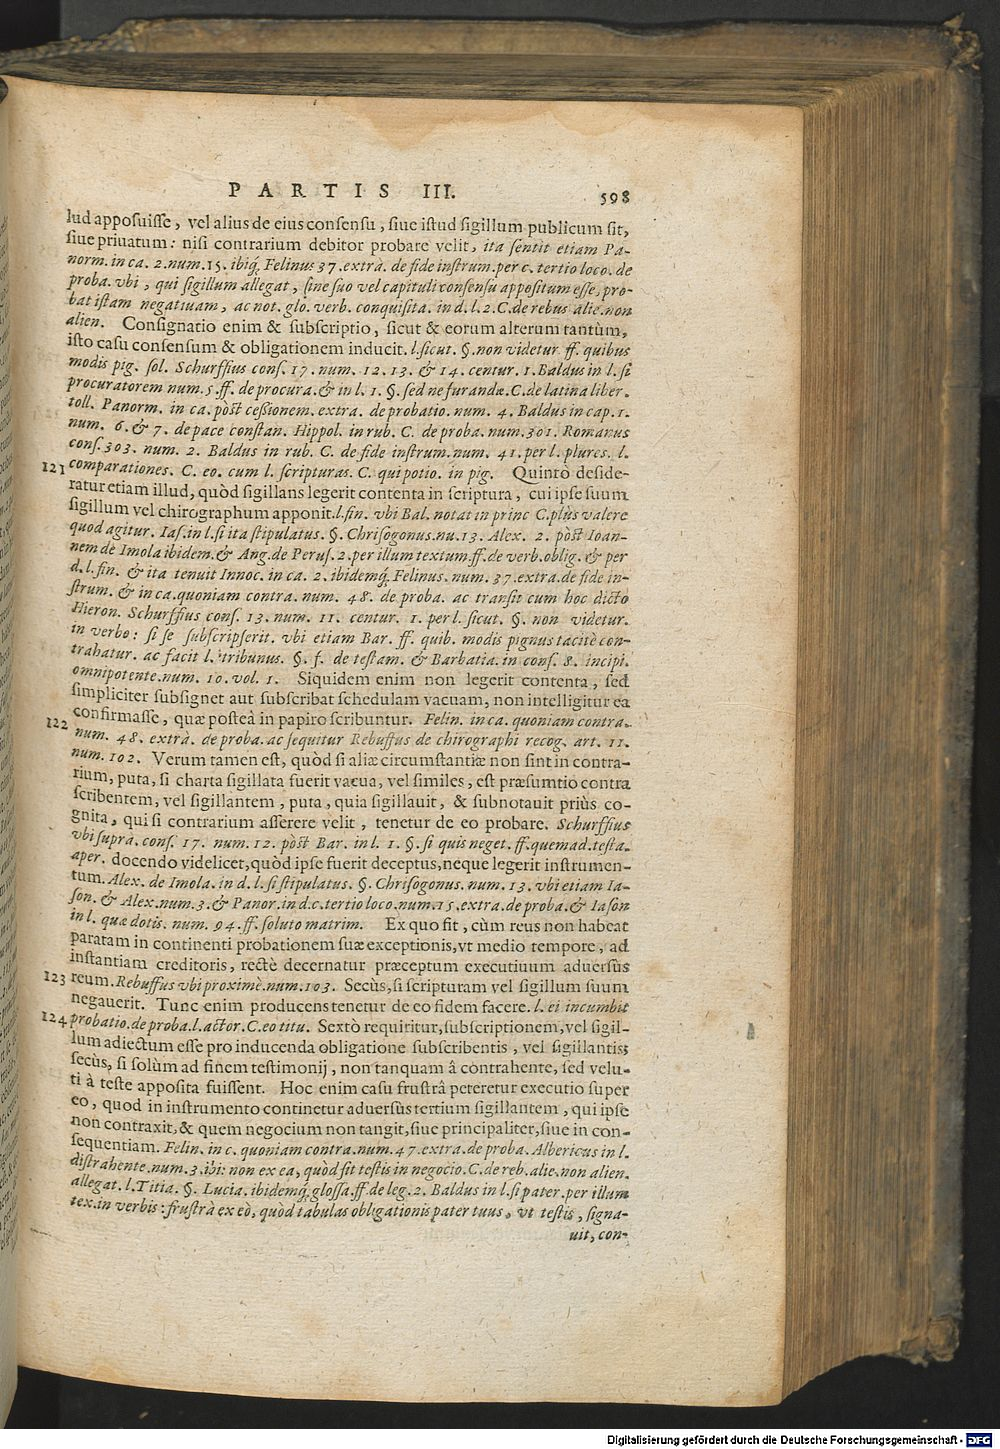 PARTIS III. 598
lud apposuisse, vel alius de eius consensu, siue istud sigillum publicum sit,
siue priuatum: nisi contrarium debitor probare velit, ita sentit etiam Pa-
norm. in ca. 2. num. 15. ibiq́. Felinus 37. extrà. de fide instrum. per c. tertio loco. de
proba. vbi, qui sigillum allegat, sine suo vel capituli consensu appositum esse, pro-
bat istam negatiuam, ac not. glo. verb. conquisita. in d. l. 2. C. de rebus alie. non
alien. Consignatio enim & subscriptio, sicut & eorum alterum tantùm,
isto casu consensum & obligationem inducit. l. sicut. §. non videtur. ff. quibus
modis pig. sol. Schurffius cons. 17. num. 12. 13. & 14. centur. 1. Baldus in l. si
procuratorem num. 5. ff. de procura. & in l. 1. §. sed ne furandæ. C. de latina liber.
toll. Panorm. in ca. pòst cessionem. extra. de probatio. num. 4. Baldus in cap. 1.
num. 6. & 7. de pace constan. Hippol. in rub. C. de proba. num. 301. Romanus
cons. 303. num. 2. Baldus in rub. C. de fide instrum. num. 41. per l. plures. l.
121 comparationes. C. eo. cum l. scripturas. C. qui potio. in pig. Quintò deside-
ratur etiam illud, quòd sigillans legerit contenta in scriptura, cui ipse suum
sigillum vel chirographum apponit. l. fin. vbi Bal. notat in princ C. plùs valere
quod agitur. Ias. in l. si ita stipulatus. §. Chrisogonus. nu. 13. Alex. 2. pòst Ioan-
nem de Imola ibidem. & Ang. de Perus. 2. per illum textum. ff. de verb. oblig. & per
d. l. fin. & ita tenuit Innoc. in ca. 2. ibidemq́. Felinus. num. 37. extra. de fide in-
strum. & in ca. quoniam contra. num. 48. de proba. ac transit cum hoc dicto
Hieron. Schurffius cons. 13. num. 11. centur. 1. per l. sicut. §. non videtur.
in verbo: si se subscripserit. vbi etiam Bar. ff. quib. modis pignus tacitè con-
trahatur. ac facit l. tribunus. §. f. de testam. & Barbatia. in cons. 8. incipi.
omnipotente. num. 10. vol. 1. Siquidem enim non legerit contenta, sed
simpliciter subsignet aut subscribat schedulam vacuam, non intelligitur ea
122 confirmasse, quæ posteà in papiro scribuntur. Felin. in ca. quoniam contra.
num. 48. extrà. de proba. ac sequitur Rebuffus de chirographi recog. art. 11.
num. 102. Verum tamen est, quòd si aliæ circumstantiæ non sint in contra-
rium, puta, si charta sigillata fuerit vacua, vel similes, est præsumtio contra
scribentem, vel sigillantem, puta, quia sigillauit, & subnotauit priùs co-
gnita, qui si contrarium asserere velit, tenetur de eo probare. Schurffius
vbi supra. cons. 17. num. 12. pòst Bar. in l. 1. §. si quis neget. ff. quemad. testa.
aper. docendo videlicet, quòd ipse fuerit deceptus, neque legerit instrumen-
tum. Alex. de Imola. in d. l. si stipulatus. §. Chrisogonus. num. 13. vbi etiam Ia-
son. & Alex. num. 3. & Panor. in d. c. tertio loco. num. 15. extra. de proba. & Iason
in l. quæ dotis. num. 94. ff. soluto matrim. Ex quo fit, cùm reus non habeat
paratam in continenti probationem suæ exceptionis, vt medio tempore, ad
instantiam creditoris, rectè decernatur præceptum executiuum aduersùs
123 reum. Rebuffus vbi proximè. num. 103. Secùs, si scripturam vel sigillum suum
negauerit. Tunc enim producens tenetur de eo fidem facere. l. ei incumbit
124 probatio. de proba. l. actor. C. eo titu. Sextò requiritur, subscriptionem, vel sigil-
lum adiectum esse pro inducenda obligatione subscribentis, vel sigillantis:
secùs, si solùm ad finem testimonij, non tanquam â contrahente, sed velu-
ti à teste apposita fuissent. Hoc enim casu frustrâ peteretur executio super
eo, quod in instrumento continetur aduersùs tertium sigillantem, qui ipse
non contraxit, & quem negocium non tangit, siue principaliter, siue in con-
sequentiam. Felin. in c. quoniam contra. num. 47. extra. de proba. Albericus in l.
distrahente. num. 3. ibi: non ex ea, quòd sit testis in negocio. C. de reb. alie. non alien.
allegat. l. Titia. §. Lucia. ibidemq́. glossa. ff. de leg. 2. Baldus in l. si pater. per illum
tex. in verbis: frustrà ex eò, quòd tabulas obligationis pater tuus, vt testis, signa-
uit, con-
Digitalisierung gefördert durch die Deutsche Forschungsgemeinschaft - DFG